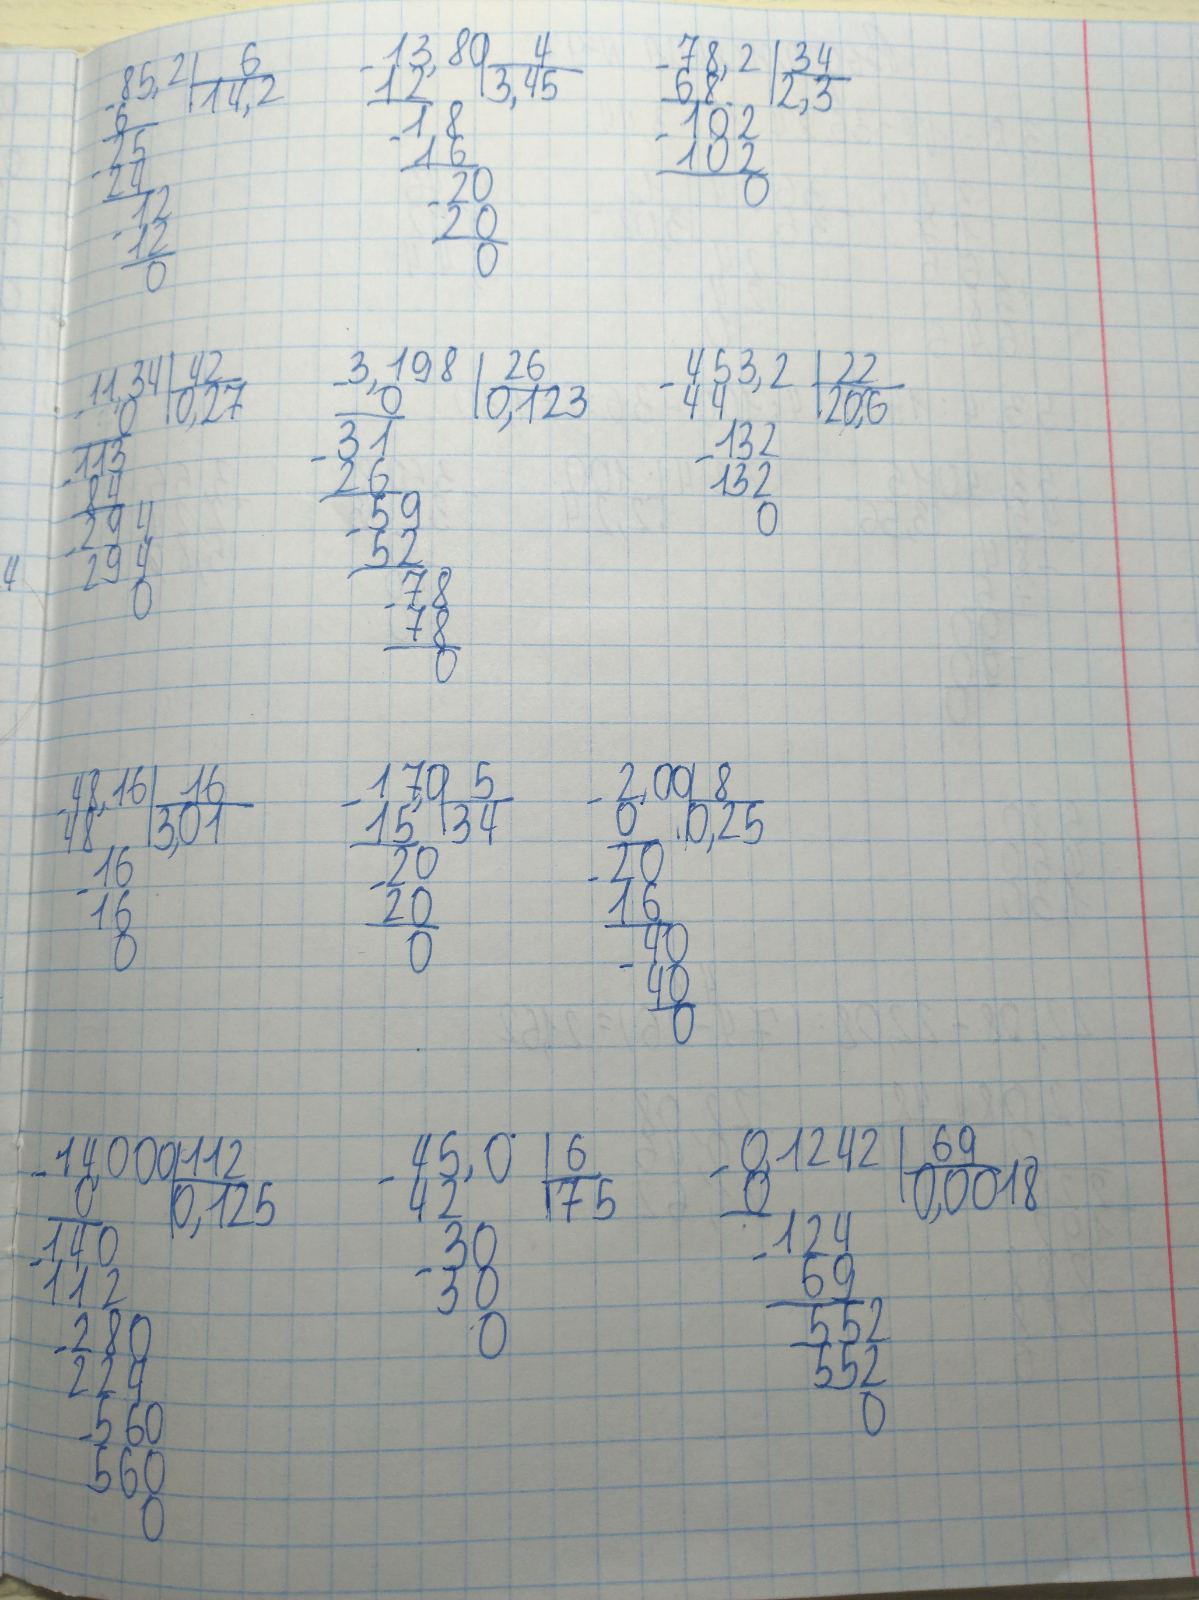 -85,2 | 6
6 14,2
-25
24
-12
12
0
-13,80 | 4
12 3,45
-1,8
16
-20
20
0
-78,2 | 34
68 2,3
-102
102
0
-11,34 | 42
0 0,27
-113
84
-294
294
0
-3,198 | 26
0 0,123
-31
26
-59
52
-78
78
0
-453,2 | 22
44 20,6
-132
132
0
-48,16 | 16
48 3,01
-16
16
0
-17,0 | 5
15 34
-20
20
0
-2,00 | 8
0 0,25
-20
16
-40
40
0
-14,000 | 112
0 0,125
-140
112
-280
224
-560
560
0
-45,0 | 6
42 75
-30
30
0
-0,1242 | 69
0 0,0018
-124
69
-552
552
0
4